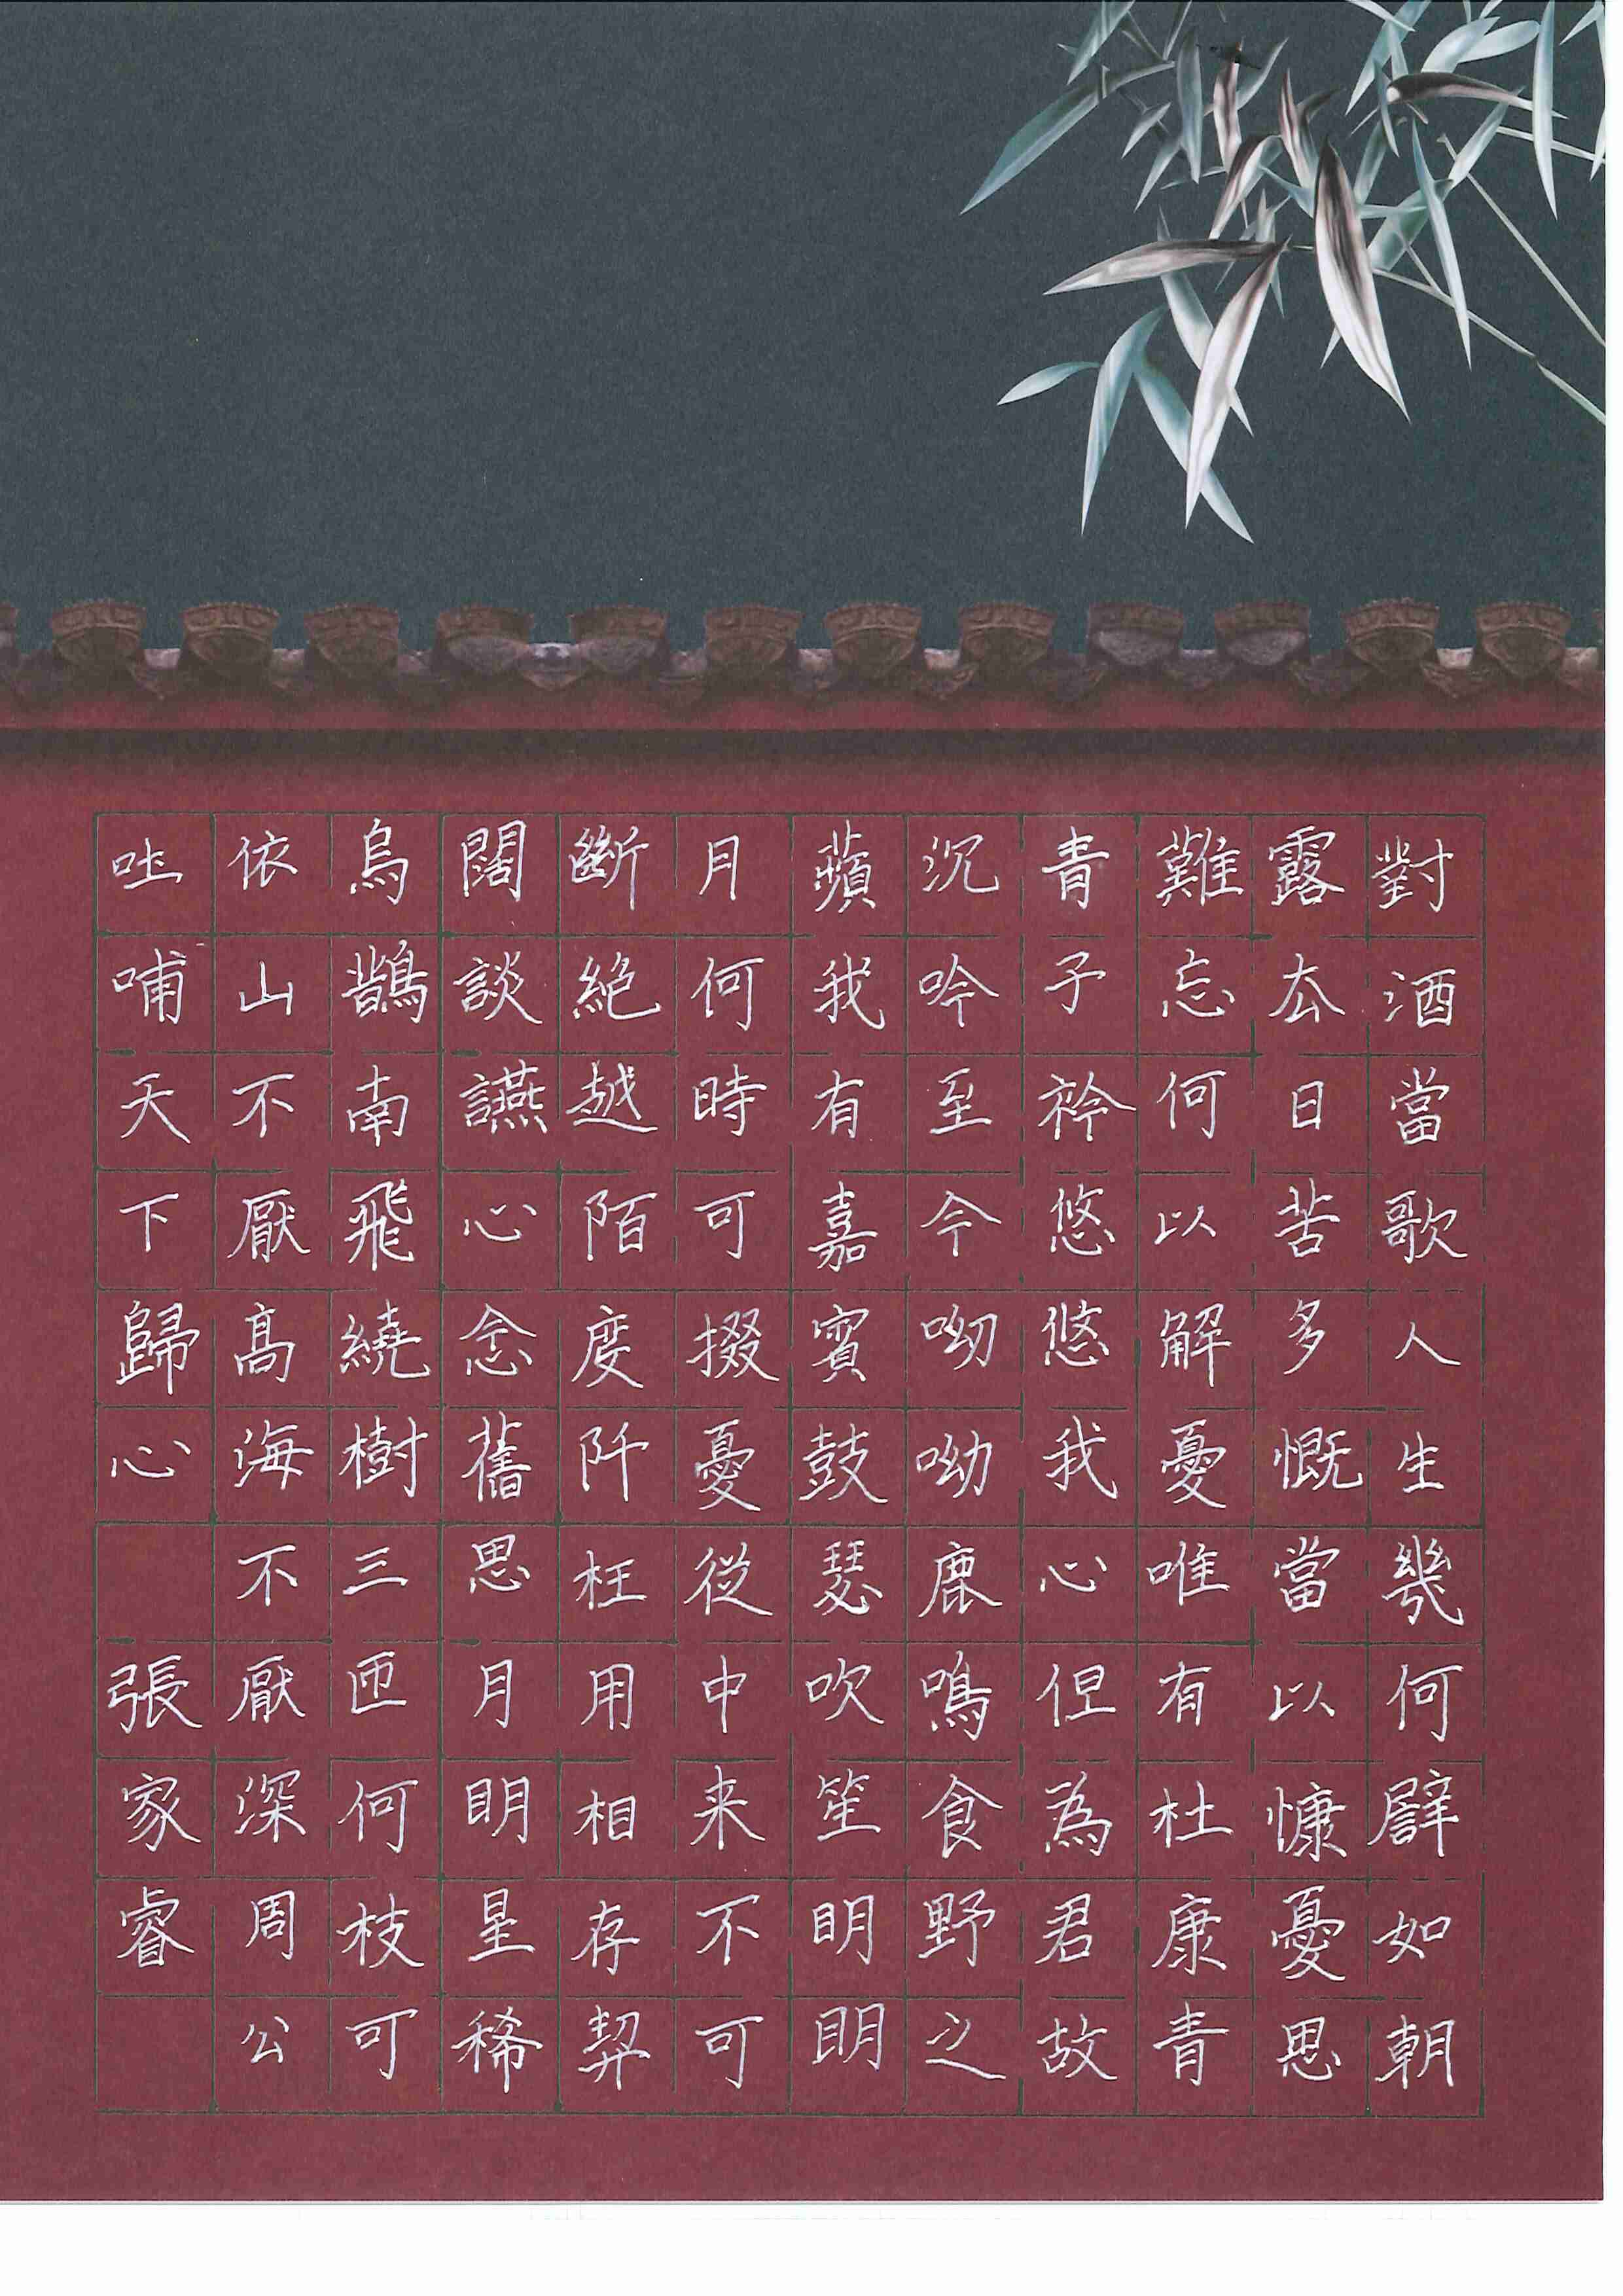 對酒當歌人生幾何譬如朝
露厺日苦多慨當以慷憂思
難忘何以解憂唯有杜康青
青子衿悠悠我心但為君故
沉吟至今呦呦鹿鳴食野之
蘋我有嘉賓鼓瑟吹笙明明
月何時可掇憂從中来不可
斷絕越陌度阡枉用相存契
闊談讌心念舊思月明星稀
烏鵲南飛繞樹三匝何枝可
依山不厭高海不厭深周公
吐哺天下歸心 張家睿